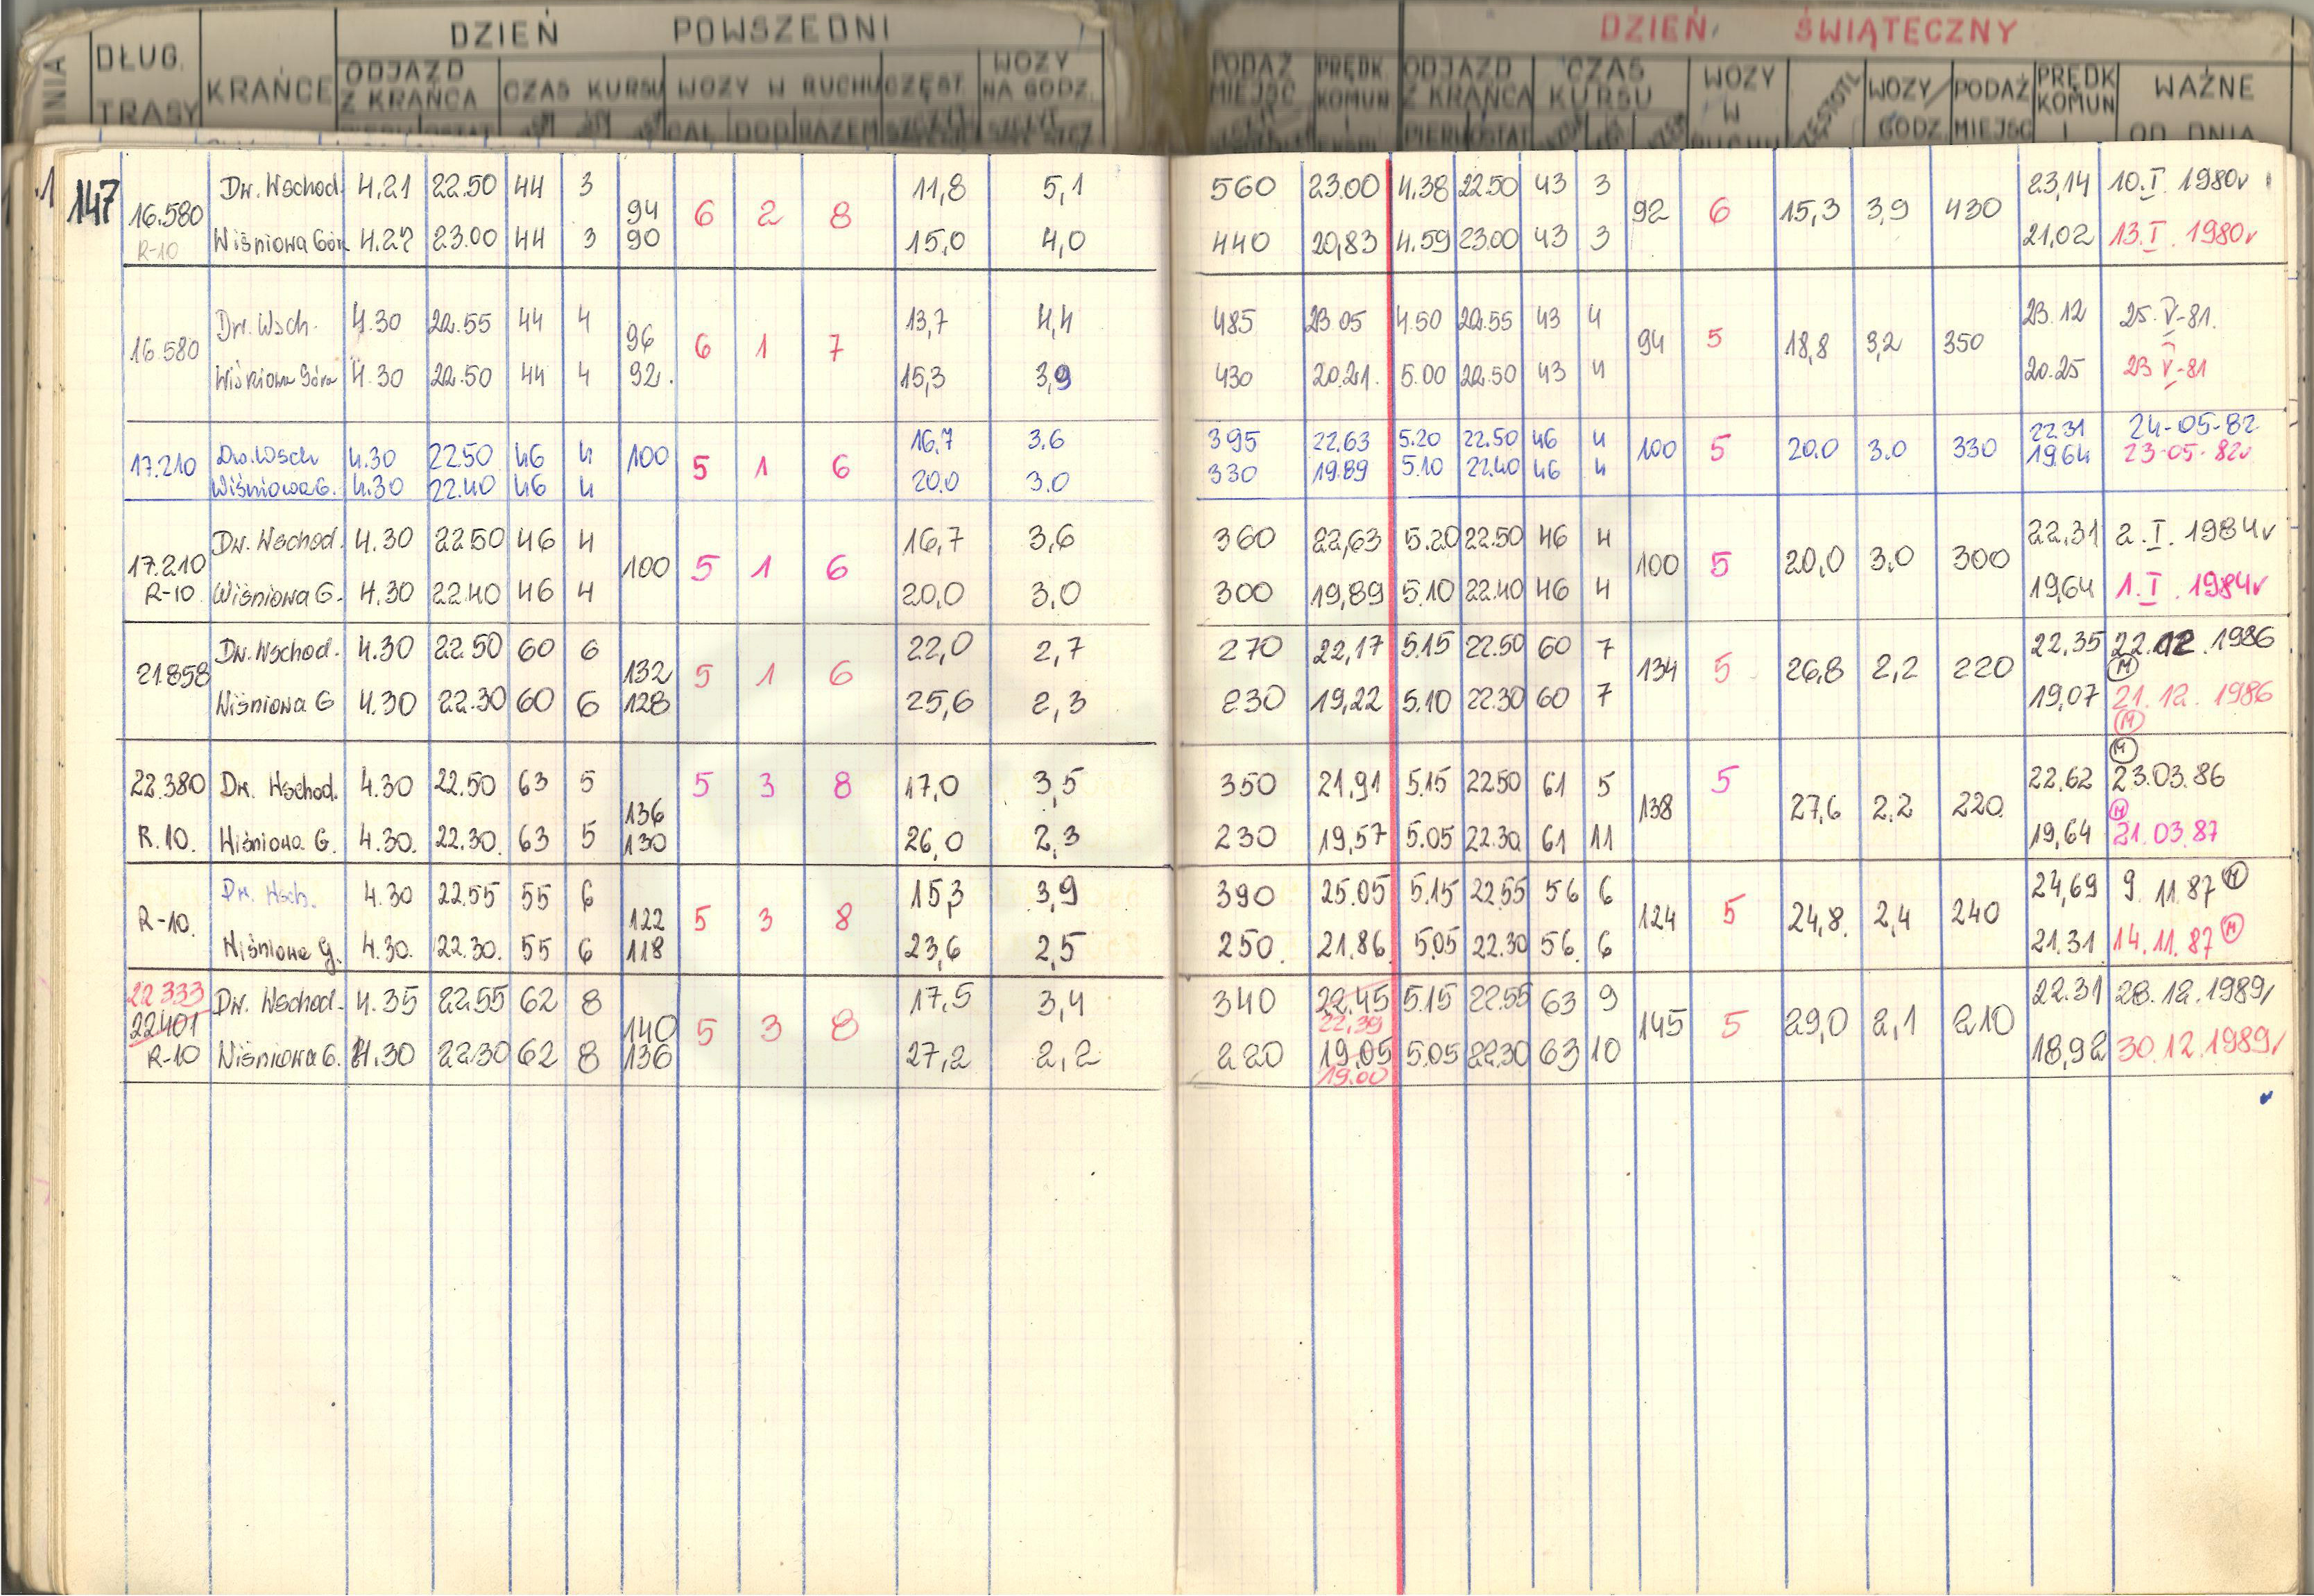 DZIEŃ POWSZEDNI DZIEŃ ŚWIĄTECZNY
DŁUG. TRASY KRAŃCE ODJAZD Z KRAŃCA CZAS KURSU WOZY W RUCHU CZĘST. WOZY NA GODZ. PODAŻ MIEJSC PRĘDK. KOMUN ODJAZD Z KRAŃCA CZAS KURSU WOZY W WOZY/GODZ. PODAŻ MIEJSC PRĘDK KOMUN WAŻNE OD DNIA
147
Dw. Wschod. 4.21 22.50 44 3 11,8 5,1 560 23.00 4.38 22.50 43 3 23,14 10.I. 1980
16.580 94 6 2 8 92 6 15,3 3,9 430
R-10 Wiśniowa Gór 4.27 23.00 44 3 90 15,0 4,0 440 20,83 4.59 23.00 43 3 21,02 13.I. 1980
Dw. Wsch. 4.30 22.55 44 4 13,7 4,4 485 23 05 4.50 22.55 43 4 23.12 25.V-81.
16.580 96 6 1 7 94 5 18,8 3,2 350
Wiśniowa Góra 4.30 22.50 44 4 92. 15,3 3,9 430 20.21. 5.00 22.50 43 4 20.25 23 V-81
Dw. Wsch 4.30 22.50 46 4 16,7 3.6 395 22.63 5.20 22.50 46 4 22.31 24-05-82
17.210 100 5 1 6 100 5 20.0 3.0 330
Wiśniowa G. 4.30 22.40 46 4 20.0 3.0 330 19.89 5.10 22.40 46 4 19.64 23-05-82
Dw. Wschod. 4.30 22 50 46 4 16,7 3,6 360 22,63 5.20 22.50 46 4 22,31 2.I. 1984
17.210 100 5 1 6 100 5 20,0 3,0 300
R-10 Wiśniowa G. 4.30 22.40 46 4 20,0 3,0 300 19,89 5.10 22.40 46 4 19,64 1.I. 1984
Dw. Wschod. 4.30 22.50 60 6 22,0 2,7 270 22,17 5.15 22.50 60 7 22,35 22.12.1986
21.858 132 5 1 6 134 5 26,8 2,2 220 (M)
Wiśniowa G 4.30 22.30 60 6 128 25,6 2,3 230 19,22 5.10 22.30 60 7 19,07 21.12.1986
(M)
(M)
22.380 Dw. Wschod. 4.30 22.50 63 5 5 3 8 17,0 3,5 350 21,91 5.15 22.50 61 5 5 22,62 23.03.86
136 138 27,6 2,2 220 (M)
R.10. Wiśniowa G. 4.30. 22.30. 63 5 130 26,0 2,3 230 19,57 5.05 22.30 61 11 19,64 21.03.87
Dw. Wsch. 4.30 22.55 55 6 15,3 3,9 390 25.05 5.15 22.55 56 6 24,69 9.11.87 (M)
R-10. 122 5 3 8 124 5 24,8. 2,4 240
Wiśniowa G. 4.30. 22.30. 55 6 118 23,6 2,5 250. 21.86 5.05 22.30 56. 6 21.31 14.11.87 (M)
22 333 Dw. Wschod. 4.35 22.55 62 8 17,5 3,4 340 22.45 5.15 22.55 63 9 22.31 28.12.1989
22401 140 5 3 8 22,39 145 5 29,0 2,1 210
R-10 Wiśniowa G. 4.30 22.30 62 8 136 27,2 2,2 220 19,05 5.05 22.30 63 10 18,92 30.12.1989
19.00